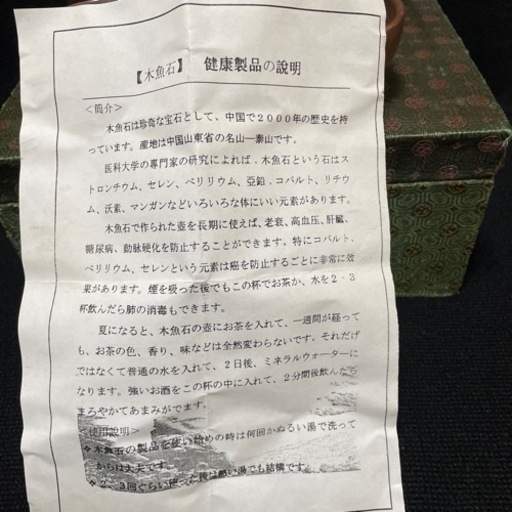 【木魚石】 健康製品の說明
<簡介>
木魚石は珍奇な宝石として、中国で2000年の歴史を持
っています。産地は中国山東省の名山一泰山です。
医科大学の專門家の研究によれば、木魚石という石はス
トロンチウム、セレン、ベリリウム、亞鉛、コバルト、リチウ
ム、沃素、マンガンなどいろいろな体にいい元素があります。
木魚石で作られた壺を長期に使えば、老衰、高血圧、肝臓、
糖尿病、動脈硬化を防止することができます。特にコバルト、
ベリリウム、セレンという元素は癌を防止するごとに非常に效
果があります。煙を吸った後でもこの杯でお茶か、水を2・3
杯飲んだら肺の消毒もできます。
夏になると、木魚石の壺にお茶を入れて、一週間が経って
も、お茶の色、香り、味などは全然変わらないです。それだけ
ではなくて普通の水を入れて、2日後、ミネラルウォーターに
なります。強いお酒をこの杯の中に入れて、2分間後飲んだら
まろやかてあまみがでます。
<使用說明>
木魚石の製品を使い始めの時は何回かぬるい湯で洗って
からは大夫です。
2、3回ぐらい使った後は熱い湯でも結構です。